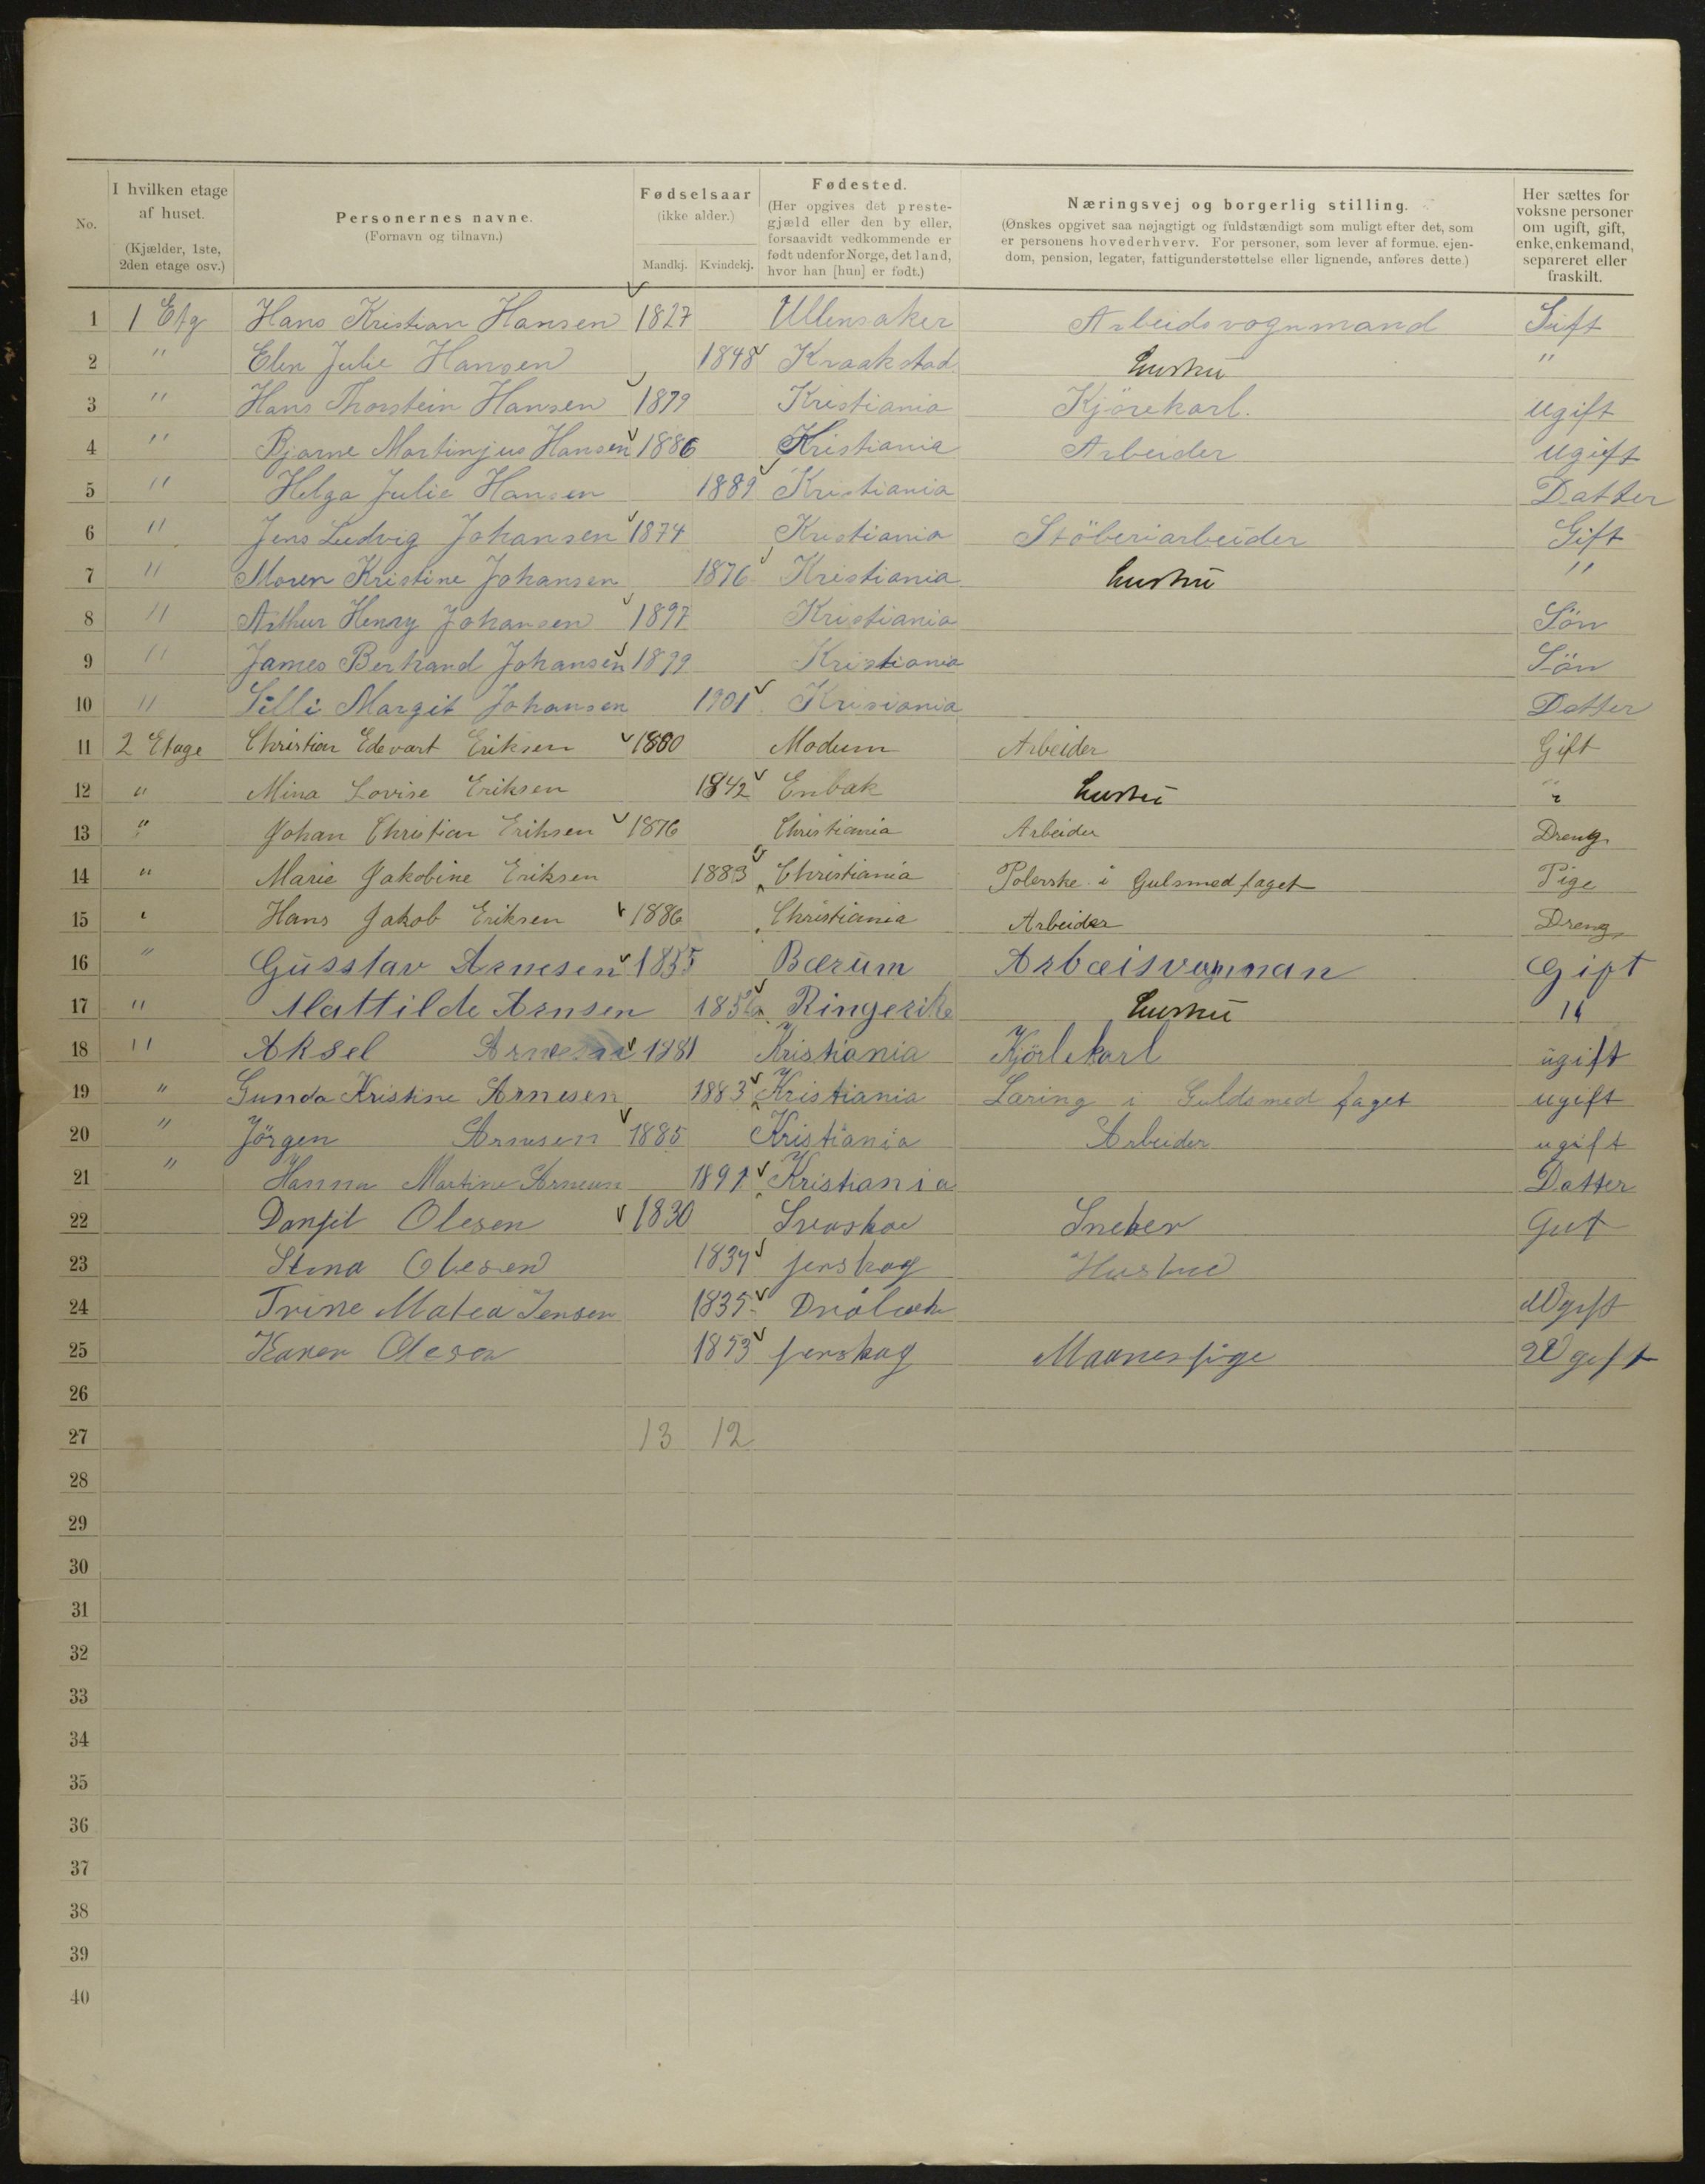 No.
I hvilken etage af huset. (Kjælder, 1ste, 2den etage osv.)
Personernes navne. (Fornavn og tilnavn.)
Fødselsaar (ikke alder.) Mandkj. Kvindekj.
Fødested. (Her opgives det prestegjæld eller den by eller, forsaavidt vedkommende er født udenfor Norge, det land, hvor han [hun] er født.)
Næringsvej og borgerlig stilling. (Ønskes opgivet saa nøjagtigt og fuldstændigt som muligt efter det, som er personens hovederhverv. For personer, som lever af formue, ejendom, pension, legater, fattigunderstøttelse eller lignende, anføres dette.)
Her sættes for voksne personer om ugift, gift, enke, enkemand, separeret eller fraskilt.
1 1 Etg Hans Kristian Hansen 1827 Ullensaker Arbeidsvognmand Gift
2 " Elen Julie Hansen 1848 Kraakstad hustru "
3 " Hans Thorstein Hansen 1879 Kristiania Kjörekarl. ugift
4 " Bjarne Martinjus Hansen 1886 Kristiania Arbeider ugift
5 " Helga Julie Hansen 1889 Kristiania Datter
6 " Jens Ludvig Johansen 1874 Kristiania Stöberiarbeider Gift
7 " Maren Kristine Johansen 1876 Kristiania hustru "
8 " Arthur Henry Johansen 1897 Kristiania Sön
9 " James Bertrand Johansen 1899 Kristiania Sön
10 " Lilli Margit Johansen 1901 Krisiania Datter
11 2 Etage Christian Edevart Eriksen 1860 Modum Arbeider Gift
12 " Mina Lovise Eriksen 1842 Enbak hustru "
13 " Johan Christian Eriksen 1876 Christiania Arbeider Dreng
14 " Marie Jakobine Eriksen 1883 Christiania Polerske i Gulsmedfaget Pige
15 " Hans Jakob Eriksen 1886 Christiania Arbeider Dreng
16 " Gusstav Arnesen 1855 Bærum Arbæisvagnman Gift
17 " Mattilde Arnsen Ringerike hustru "
18 " Aksel Arnesen 1881 Kristiania Kjörlekarl ugift
19 " Gunda Kristine Arnesen 1883 Kristiania Læring i Guldsmedfaget ugift
20 " Jörgen Arnesen 1885 Kristiania Arbeider ugift
21 " Hanna Martine Arnesen 1891 Kristiania Datter
22 Olesen 1830 Sneker Gift
23 Stina Olesen 1834 Hustru
24 Trine Matea Jensen 1835 Ugift
25 Karen Olesen 1853 Ugift
26
27 13 12
28
29
30
31
32
33
34
35
36
37
38
39
40